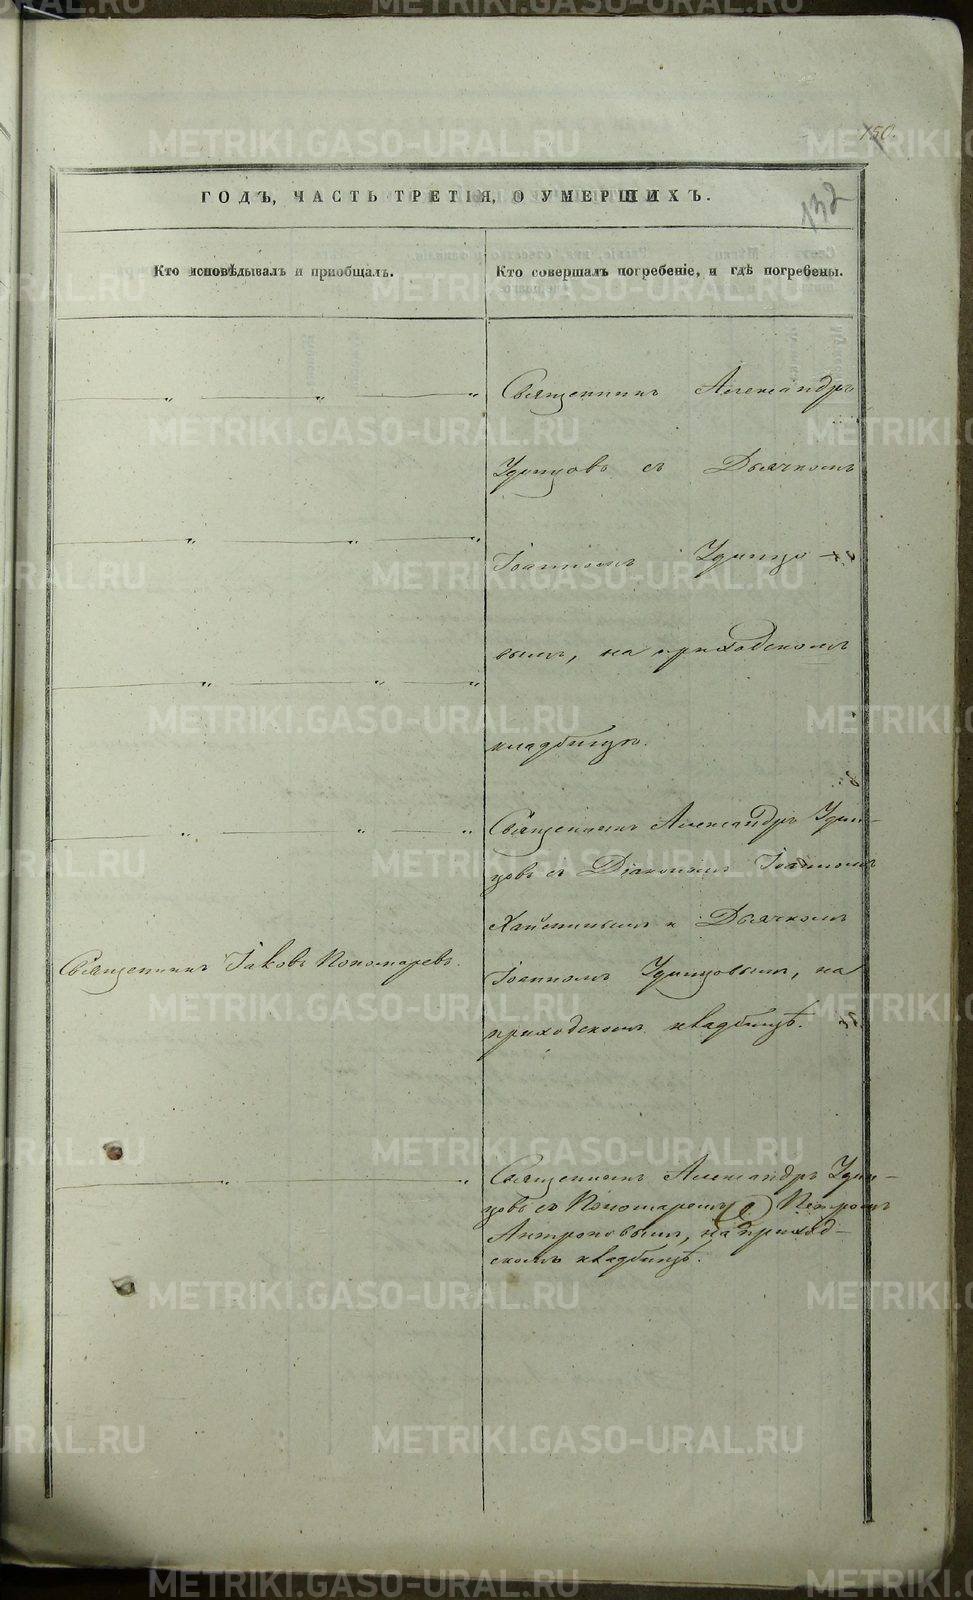 150.
132
ГОДЪ, ЧАСТЬ ТРЕТІЯ, О УМЕРШИХЪ.
Кто исповѣдывалъ и пріобщалъ.
Кто совершалъ погребеніе, и гдѣ погребены.
Священникъ Александръ
Удинцовъ съ Дьячкомъ
Іоанномъ Удинцо-
вымъ, на приходскомъ
кладбищѣ.
Священникъ Александръ Удин-
цовъ съ Діакономъ Іоанномъ
и Дьячкомъ
Священникъ Іаковъ Пономаревъ.
Іоанномъ Удинцовымъ, на
приходскомъ кладбищѣ.
Священникъ Александръ Удин-
цовъ съ Пономаремъ Петромъ
Антроповымъ, на приход-
скомъ кладбищѣ.
METRIKI.GASO-URAL.RU